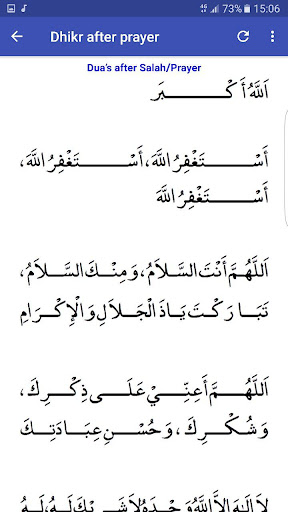 73% 15:06
Dhikr after prayer
Dua's after Salah/Prayer
اَللّٰهُ أَكْبَر
أَسْتَغْفِرُ اللَّهَ، أَسْتَغْفِرُ اللَّهَ،
أَسْتَغْفِرُ اللَّهَ
اَللَّهُمَّ أَنْتَ السَّلاَمُ، وَمِنْكَ السَّلاَمُ،
تَبَارَكْتَ يَاذَ الْجَلاَلِ وَالْإِكْرَامِ
اَللَّهُمَّ أَعِنِّيْ عَلَى ذِكْرِكَ،
وَشُكْرِكَ، وَحُسْنِ عِبَادَتِكَ
لاَ إِلَهَ إِلاَّ اللَّهُ وَحْدَهُ لاَ شَرِيْكَ لَهُ، لَهُ